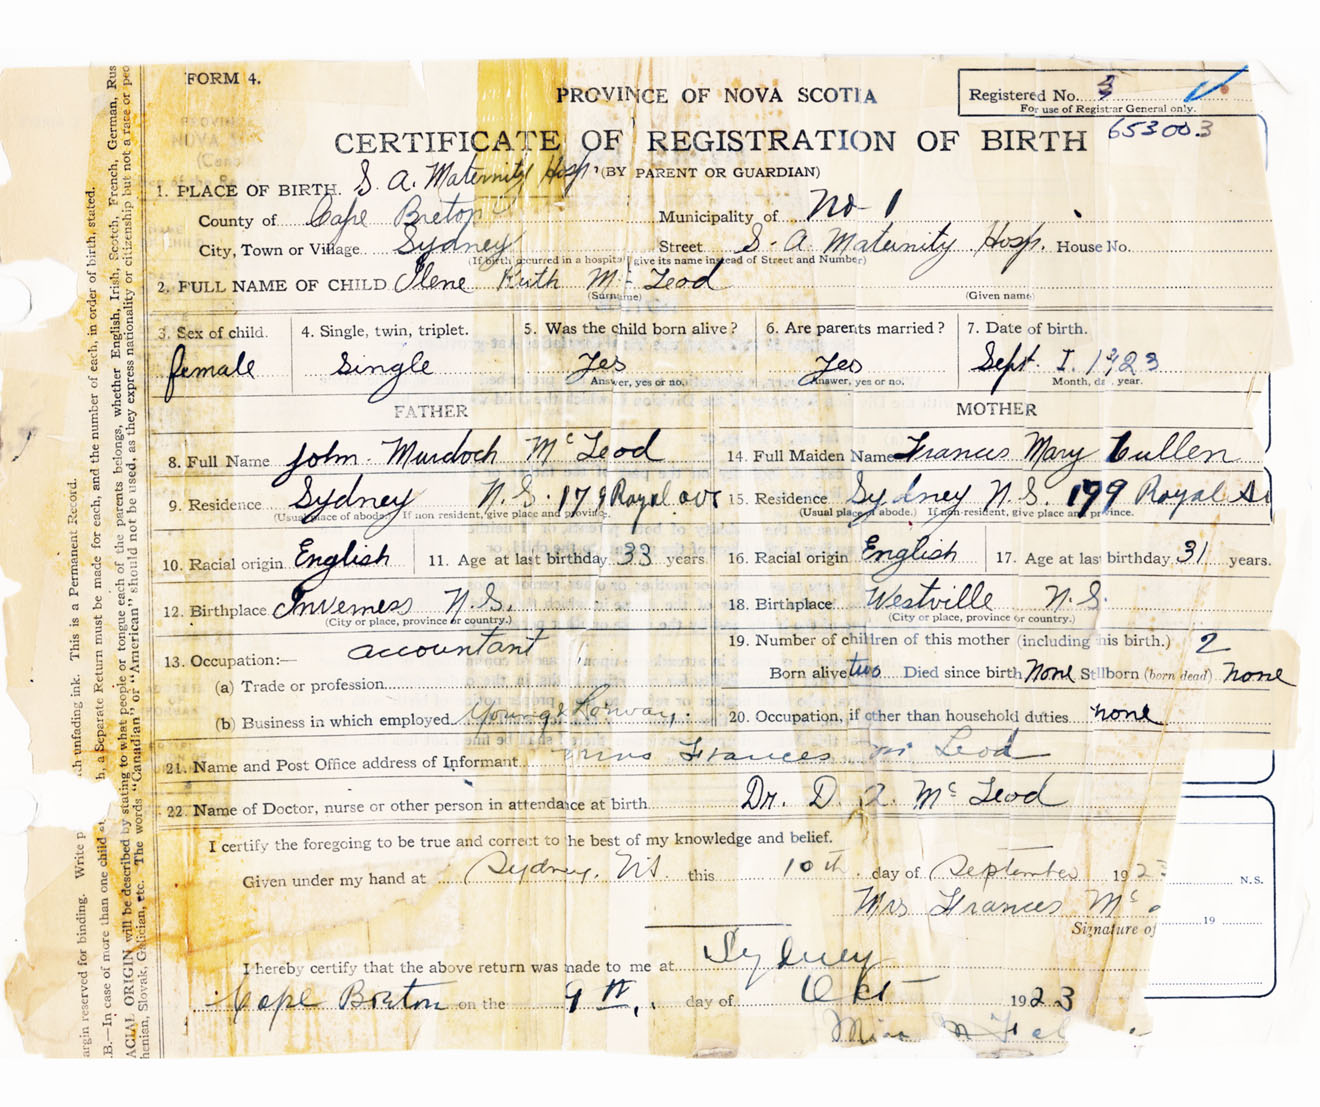 FORM 4.
PROVINCE OF NOVA SCOTIA
Registered No. 3
For use of Registrar General only.
653003
CERTIFICATE OF REGISTRATION OF BIRTH
(BY PARENT OR GUARDIAN)
1. PLACE OF BIRTH. S. A. Maternity Hosp.
County of Cape Breton Municipality of No 1
City, Town or Village Sydney Street S. A. Maternity Hosp. House No.
(If birth occurred in a hospital give its name instead of Street and Number)
2. FULL NAME OF CHILD Ilene Ruth Mc Leod
(Surname) (Given name)
3. Sex of child. 4. Single, twin, triplet. 5. Was the child born alive? 6. Are parents married? 7. Date of birth.
female Single Yes Yes Sept. 1. 1923
Answer, yes or no. Answer, yes or no. Month, da , year.
FATHER MOTHER
8. Full Name John Murdoch Mc Leod 14. Full Maiden Name Frances Mary Cullen
9. Residence Sydney N.S. 179 Royal ave 15. Residence Sydney N.S. 179 Royal
(Usual place of abode.) If non resident, give place and province. (Usual place of abode.) If non-resident, give place and province.
10. Racial origin English 11. Age at last birthday 33 years 16. Racial origin English 17. Age at last birthday 31 years.
12. Birthplace Inverness N.S. 18. Birthplace Westville N.S.
(City or place, province or country.) (City or place, province or country.)
13. Occupation:— accountant 19. Number of children of this mother (including his birth.) 2
(a) Trade or profession Born alive two Died since birth None Stillborn (born dead) none
(b) Business in which employed Young & 20. Occupation, if other than household duties none
21. Name and Post Office address of Informant Mrs Frances Mc Leod
22. Name of Doctor, nurse or other person in attendance at birth Dr. D. Mc Leod
I certify the foregoing to be true and correct to the best of my knowledge and belief.
Given under my hand at Sydney. N.S. this 10th day of September 1923 N.S.
Mrs Frances Mc
Signature of 19
I hereby certify that the above return was made to me at Sydney
Cape Breton on the 9th, day of Oct 1923
Miss
argin reserved for binding. Write p th unfading ink. This is a Permanent Record.
B.—In case of more than one child at h, a Separate Return must be made for each, and the number of each, in order of birth, stated.
ACIAL ORIGIN will be described by stating to what people or tongue each of the parents belongs, whether English, Irish, Scotch, French, German, Rus
henian, Slovak, Galician, etc. The words "Canadian" or "American" should not be used, as they express nationality or citizenship but not a race or peo